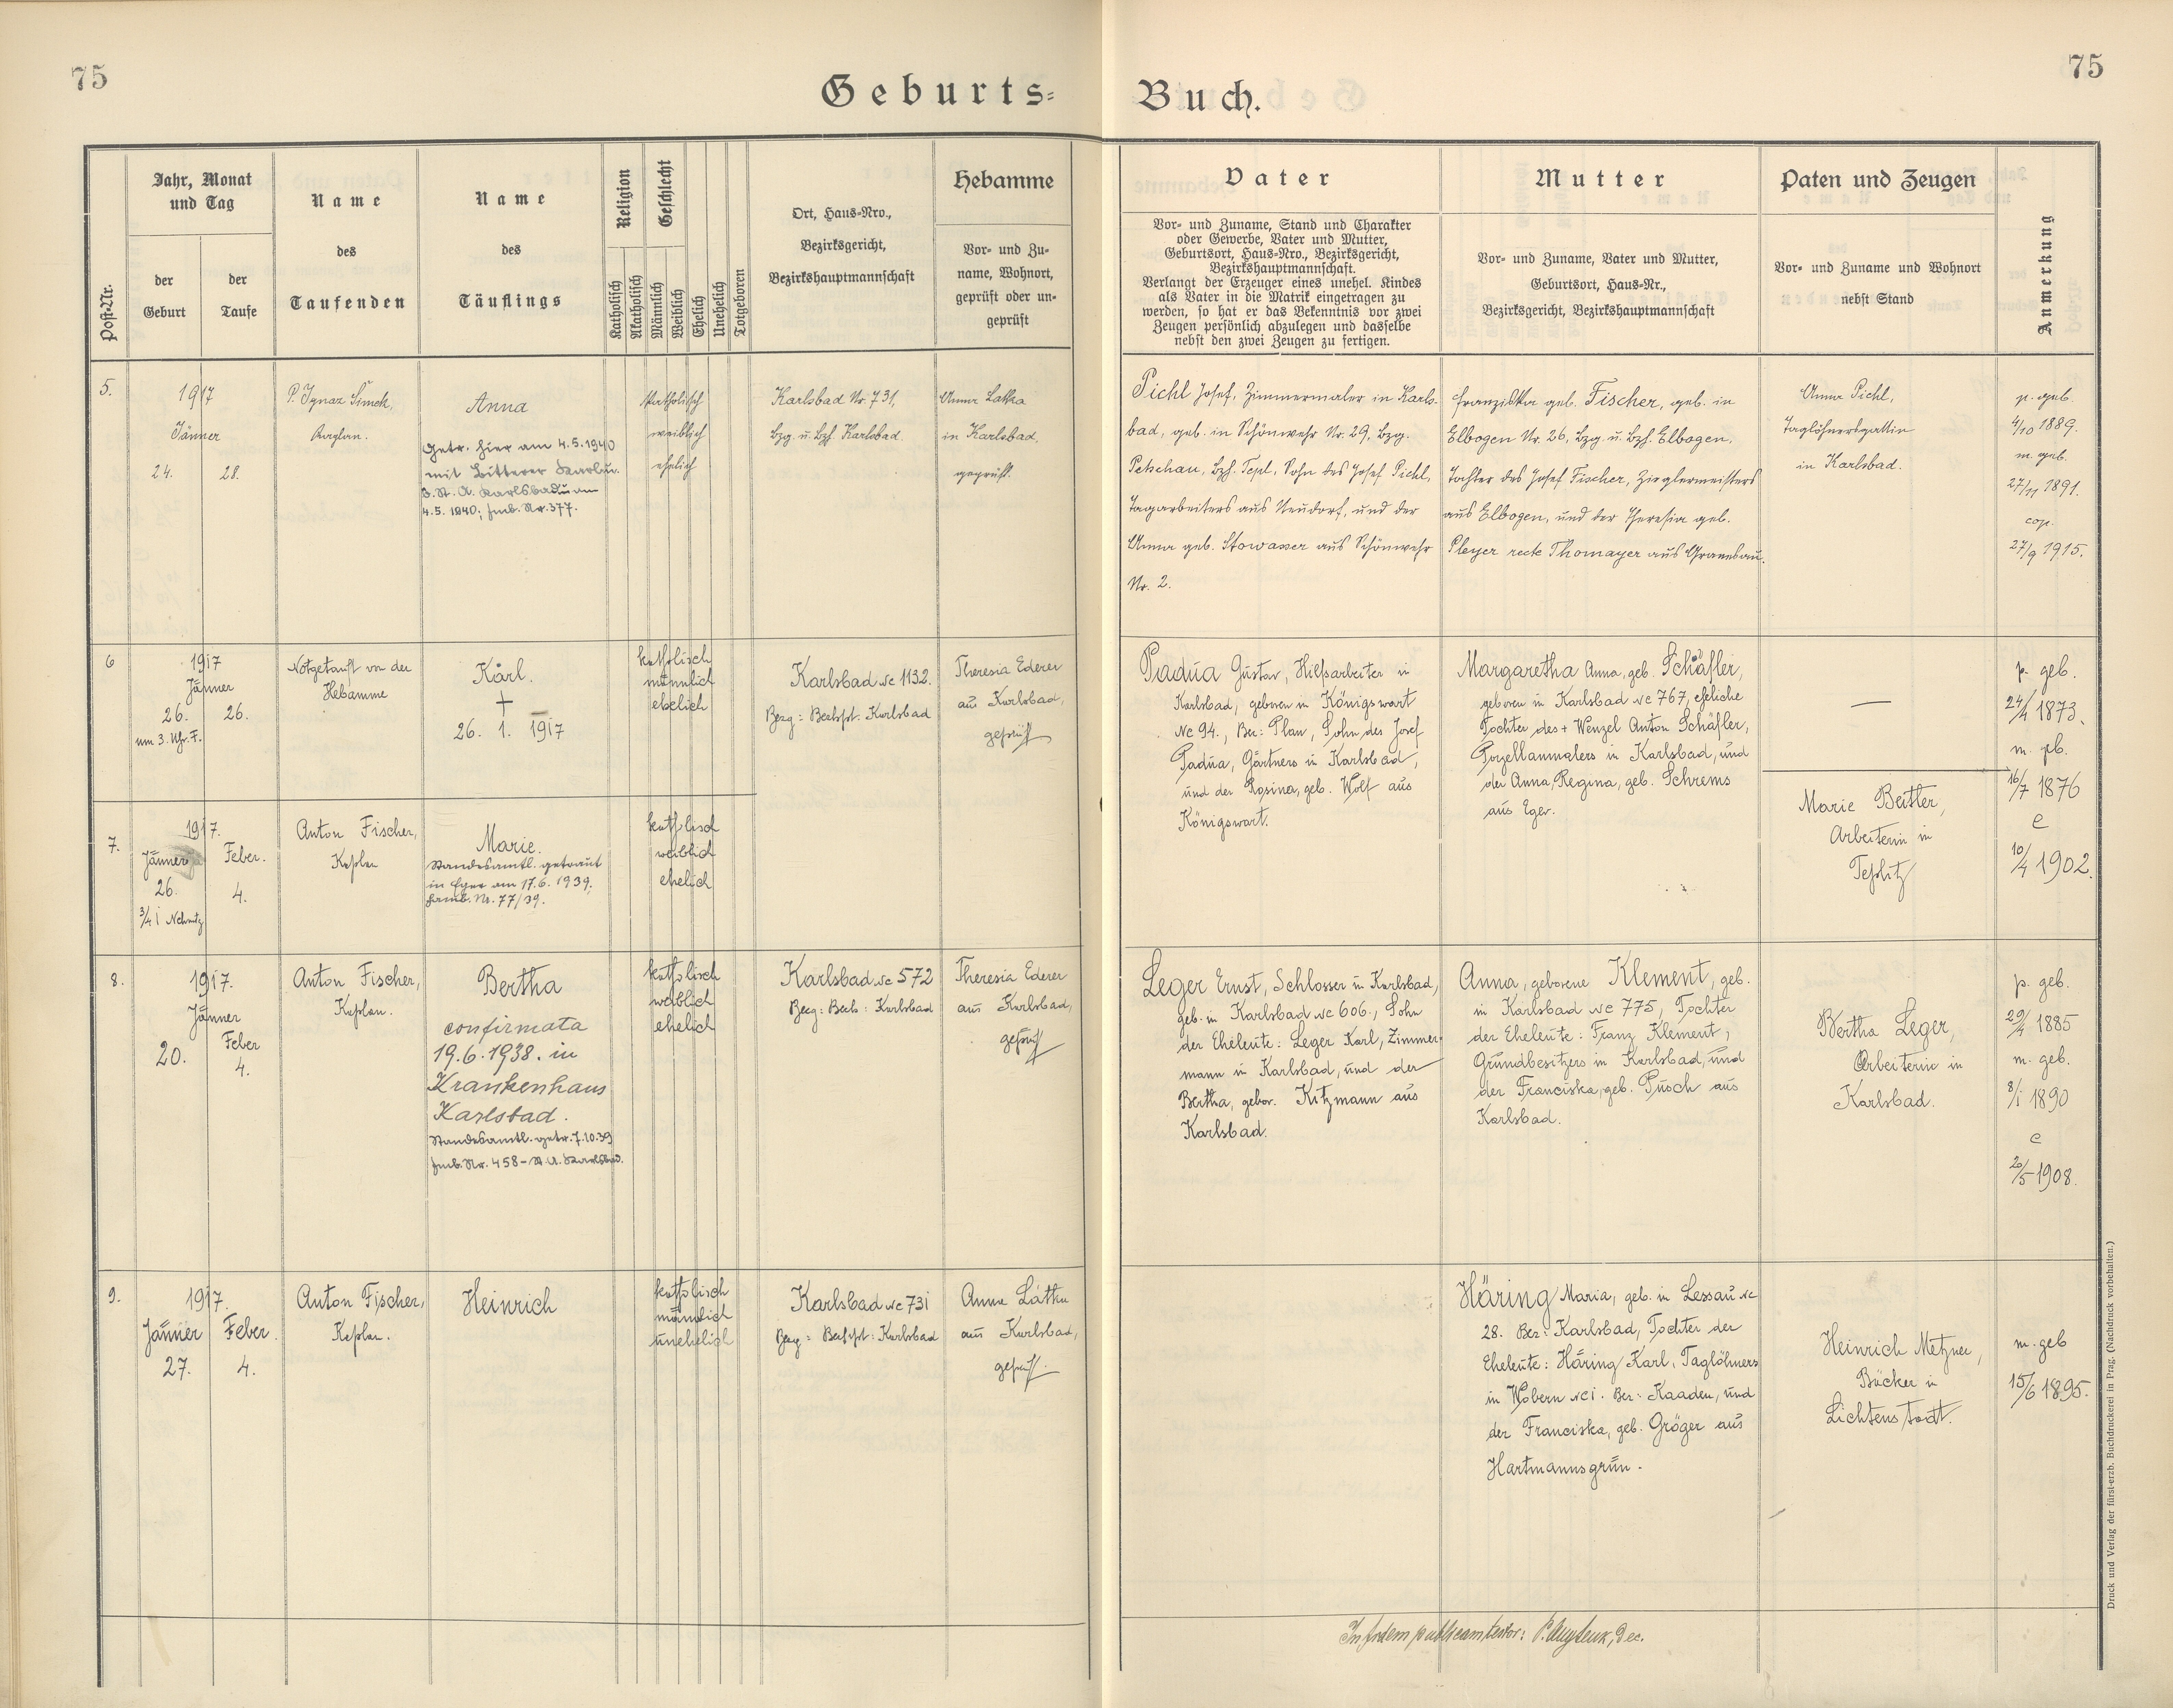 75
75
Geburts-
Buch.
Post-Nr.
Jahr, Monat
und Tag
der
Geburt
der
Taufe
Name
des
Taufenden
Name
des
Täuflings
Religion
Katholisch
Akatholisch
Geschlecht
Männlich
Weiblich
Ehelich
Unehelich
Totgeboren
Ort, Haus-Nro.,
Bezirksgericht,
Bezirkshauptmannschaft
Hebamme
Vor- und Zu-
name, Wohnort,
geprüft oder un-
geprüft
Vater
Vor- und Zuname, Stand und Charakter
oder Gewerbe, Vater und Mutter,
Geburtsort, Haus-Nro., Bezirksgericht,
Bezirkshauptmannschaft.
Verlangt der Erzeuger eines unehel. Kindes
als Vater in die Matrik eingetragen zu
werden, so hat er das Bekenntnis vor zwei
Zeugen persönlich abzulegen und dasselbe
nebst den zwei Zeugen zu fertigen.
Mutter
Vor- und Zuname, Vater und Mutter,
Geburtsort, Haus-Nr.,
Bezirksgericht, Bezirkshauptmannschaft
Paten und Zeugen
Vor- und Zuname und Wohnort
nebst Stand
Anmerkung
5.
1917
Jänner
24. 28.
P. Ignaz Šimek,
Kaplan.
Anna
Getr. hier am 4.5.1940
mit Bitterer
St. A. Karlsbad am
4.5.1940; Fmb. Nr. 377.
katholisch
weiblich
ehelich
Karlsbad Nr. 731,
Bzg. u. Bzh. Karlsbad.
Anna Latka
in Karlsbad,
geprüft.
Pichl Josef, Zimmermaler in Karls-
bad, geb. in Schönwehr Nr. 29, Bzg.
Petschau, Bzh. Tepl, Sohn des Josef Pichl,
Tagarbeiters aus Neudorf, und der
Anna geb. Stowasser aus Schönwehr
Nr. 2.
Franziska geb. Fischer, geb. in
Elbogen Nr. 26, Bzg. u. Bzh. Elbogen,
Tochter des Josef Fischer, Zieglermeisters
aus Elbogen, und der Theresia geb.
Pleyer recte Thomayer aus Granesau.
Anna Pichl,
Taglöhnersgattin
in Karlsbad.
p. geb.
4/10 1889.
m. geb.
27/11 1891.
cop.
27/9 1915.
6
1917
Jänner
26. 26.
um 3. Uhr. F.
Notgetauft von der
Hebamme
Karl.
†
26. 1. 1917
katholisch
männlich
ehelich
Karlsbad Nc 1132.
Bezg: Bezhpt: Karlsbad
Theresia Ederer
aus Karlsbad,
geprüft
Padua Gustav, Hilfsarbeiter in
Karlsbad, geboren in Königswart
Nc 94., Bez: Plan, Sohn des Josef
Padua, Gärtners in Karlsbad,
und der Rosina, geb. Wolf aus
Königswart.
Margaretha Anna, geb. Schäfler,
geboren in Karlsbad Nc 767, eheliche
Tochter des + Wenzel Anton Schäfler,
Porzellanmalers in Karlsbad, und
der Anna Regina, geb. Schrems
aus Eger.
—
p. geb.
24/4 1873.
m. gb.
16/7 1876
c
10/4 1902.
7.
1917.
Jänner Feber.
26. 4.
3/4 1 Nchmttg
Anton Fischer,
Kaplan
Marie.
Standesamtl. getraut
in Eger am 17.6.1939,
Famb. Nr. 77/39.
katholisch
weiblich
ehelich
Marie Beitler,
Arbeiterin in
Teplitz
8.
1917.
Jänner
20.
Feber
4.
Anton Fischer,
Kaplan.
Bertha
confirmata
19.6.1938. in
Krankenhaus
Karlsbad.
Standesamtl. getr. 7.10.39
Fmb. Nr. 458 - St. A. Karlsbad.
katholisch
weiblich
ehelich
Karlsbad Nc 572
Bezg: Bezh: Karlsbad
Theresia Ederer
aus Karlsbad,
geprüft
Leger Ernst, Schlosser in Karlsbad,
geb. in Karlsbad Nc 606., Sohn
der Eheleute: Leger Karl, Zimmer-
mann in Karlsbad, und der
Bertha, gebor. Kitzmann aus
Karlsbad.
Anna, geborene Klement, geb.
in Karlsbad Nc 775, Tochter
der Eheleute: Franz Klement,
Grundbesitzers in Karlsbad, und
der Franciska, geb. Pusch aus
Karlsbad.
Bertha Leger,
Arbeiterin in
Karlsbad.
p. geb.
29/4 1885
m. geb.
8/1 1890
c
20/5 1908.
9.
1917.
Jänner Feber
27. 4.
Anton Fischer,
Kaplan.
Heinrich
katholisch
männlich
unehelich
Karlsbad Nc 731
Bezg: Bezhpt: Karlsbad
Anna Latka
aus Karlsbad,
geprüft.
Häring Maria, geb. in Lessau Nc
28. Bez: Karlsbad, Tochter der
Eheleute: Häring Karl, Taglöhners
in Wobern Nc 1. Bez: Kaaden, und
der Franciska, geb. Gröger aus
Hartmannsgrün.
Heinrich Metzner,
Bäcker in
Lichtenstadt.
m. geb
15/6 1895.
In fidem publicam testor: P. Dec.
Druck und Verlag der fürst-erzb. Buchdruckerei in Prag. (Nachdruck vorbehalten.)